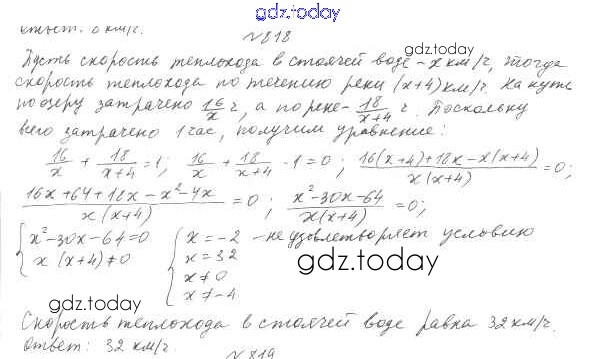 gdz.today
ответ: 0 км/г.
№818
Пусть скорость теплохода в стоячей воде - x км/ч, тогда
скорость теплохода по течению реки (x+4) км/ч. На путь
по озеру затрачено 16/x ч, а по реке - 18/(x+4) ч. Поскольку
всего затрачено 1 час, получим уравнение:
16/x + 18/(x+4) = 1; 16/x + 18/(x+4) - 1 = 0; (16(x+4)+18x-x(x+4))/(x(x+4)) = 0;
(16x+64+18x-x²-4x)/(x(x+4)) = 0; (x²-30x-64)/(x(x+4)) = 0;
{x²-30x-64=0 {x=-2 - не удовлетворяет условию
x(x+4)≠0 x=32
x≠0
x≠-4
gdz.today
gdz.today
Скорость теплохода в стоячей воде равна 32 км/ч.
Ответ: 32 км/ч.
gdz.today
№819